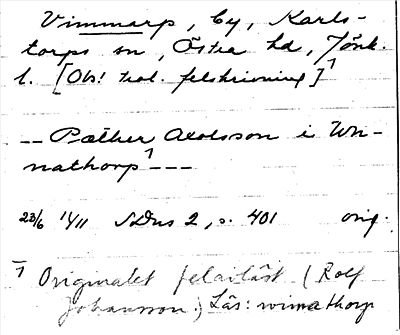 Vimmarp, by, Karls-
torps sn, Östra hd, Jönk.
l. [Obs! trol. felskrivning]1)
-- Pæther Axelsson i Wn-
nathorp1) ---
23/6 1411 SDns 2, s. 401 orig.
1) Originalet felavläst (Rolf
Johansson.) Läs: wimathorp